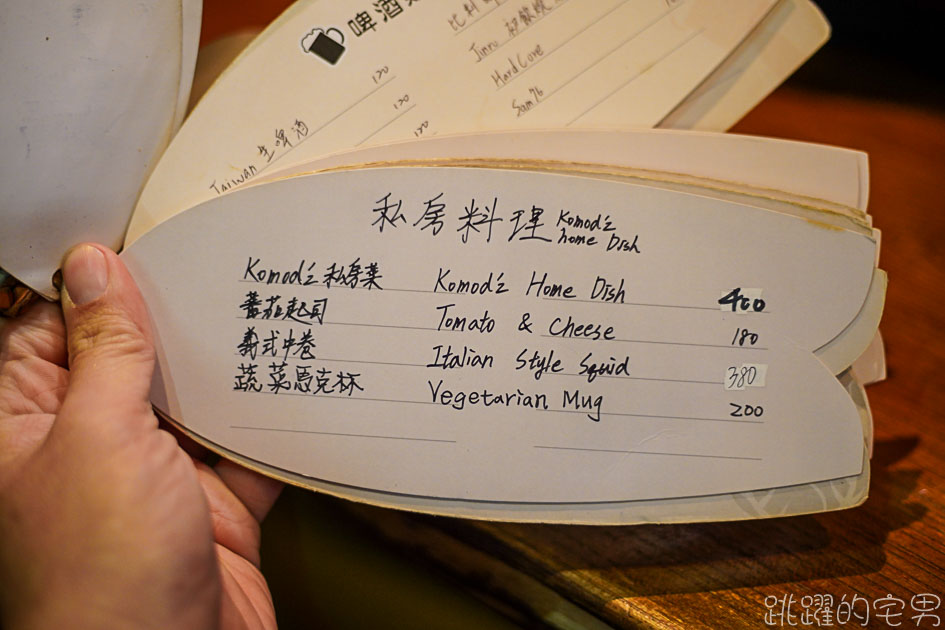 啤酒
Jinro
HardCore
120
120
120
Taiwan 生啤酒
私房料理 Komod'z home Dish
Komod'z 私房菜 Komod'z Home Dish 400
蕃茄起司 Tomato & Cheese 180
義式中卷 Italian Style Squid 380
蔬菜馬克杯 Vegetarian Mug 200
跳躍的宅男